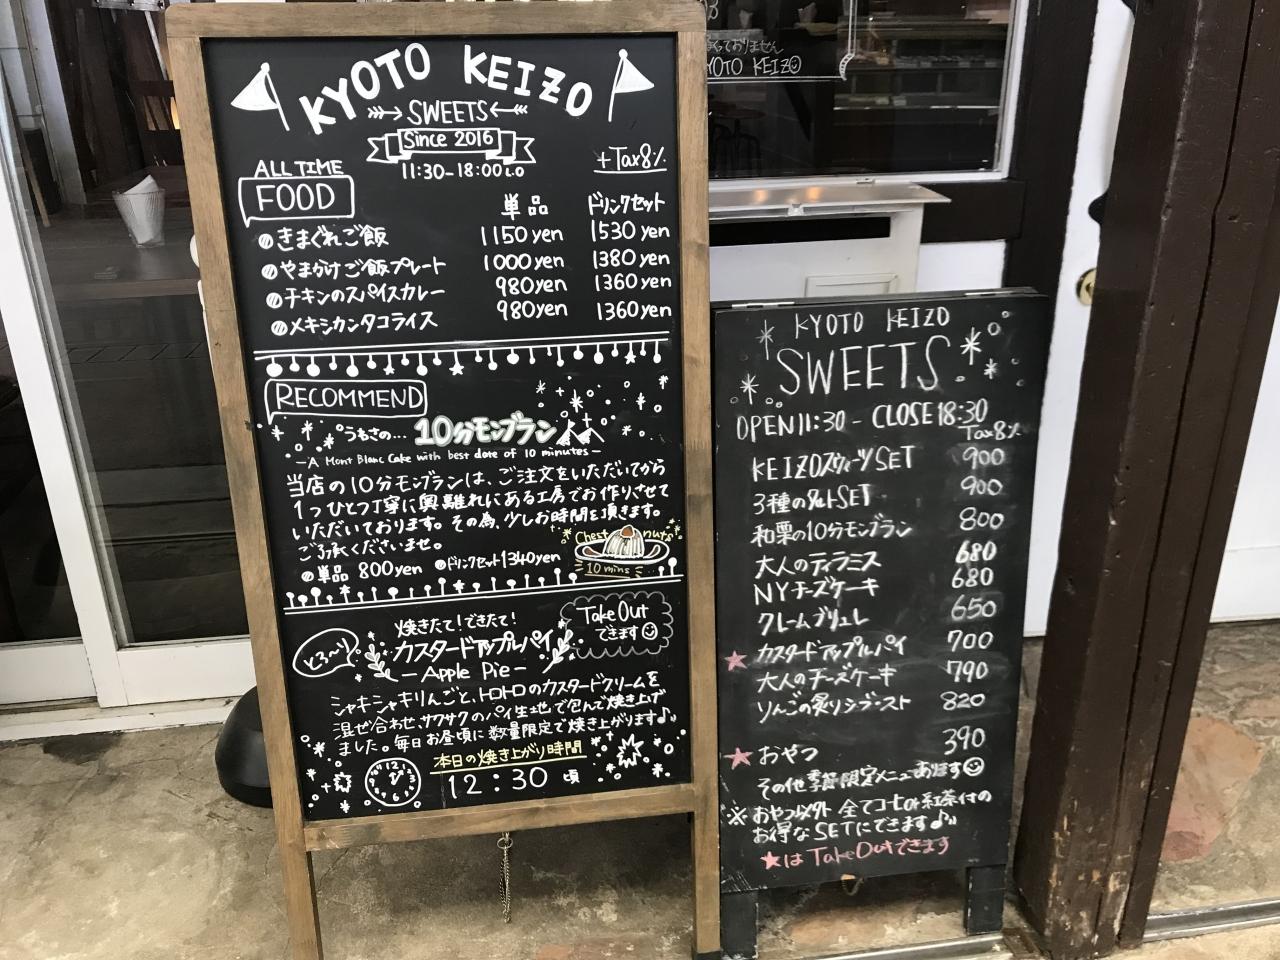 KYOTO KEIZO
SWEETS
Since 2016
11:30-18:00 L.O
+Tax8%
ALL TIME
FOOD
単品 ドリンクセット
きまぐれご飯 1150yen 1530yen
やまかけご飯プレート 1000yen 1380yen
チキンのスパイスカレー 980yen 1360yen
メキシカンタコライス 980yen 1360yen
RECOMMEND
うわさの… 10分モンブラン
-A Mont Blanc Cake with best date of 10 minutes-
当店の10分モンブランは、ご注文をいただいてから
1つひとつ丁寧に奥離れにある工房でお作りさせて
いただいております。その為、少しお時間を頂きます。
ご了承くださいませ。
単品 800yen ドリンクセット1340yen
Chestnuts
10 mins
焼きたて!できたて!
とろ〜り
カスタードアップルパイ
-Apple Pie-
Take Out
できます
シャキシャキりんごと、トロトロのカスタードクリームを
混ぜ合わせ、サクサクのパイ生地で包んで焼き上げ
ました。毎日お昼頃に数量限定で焼き上がります♪
本日の焼き上がり時間
12:30 頃
KYOTO KEIZO
KYOTO KEIZO
SWEETS
OPEN11:30 - CLOSE18:30
Tax8%
KEIZOスウィーツSET 900
3種のタルトSET 900
和栗の10分モンブラン 800
大人のティラミス 680
NYチーズケーキ 680
クレームブリュレ 650
★カスタードアップルパイ 700
大人のチーズケーキ 790
りんごの炙りシブースト 820
★おやつ 390
その他季節限定メニューあります
※おやつ以外 全てコーヒーor紅茶付の
お得なSETにできます♪
★はTakeOutできます